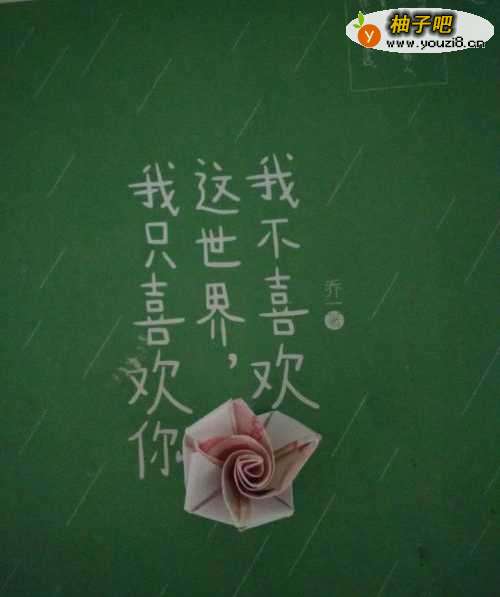 柚子吧
www.youzi8.cn
我不喜欢
这世界,
我只喜欢你
乔一